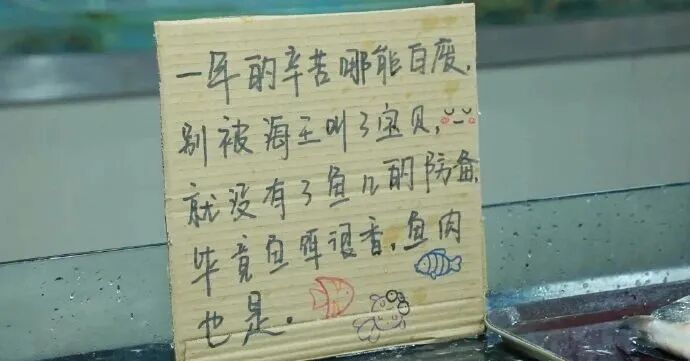 一年的辛苦哪能百废,
别被海王叫了宝贝,
就没有了鱼儿的防备,
毕竟鱼饵很香,鱼肉
也是。